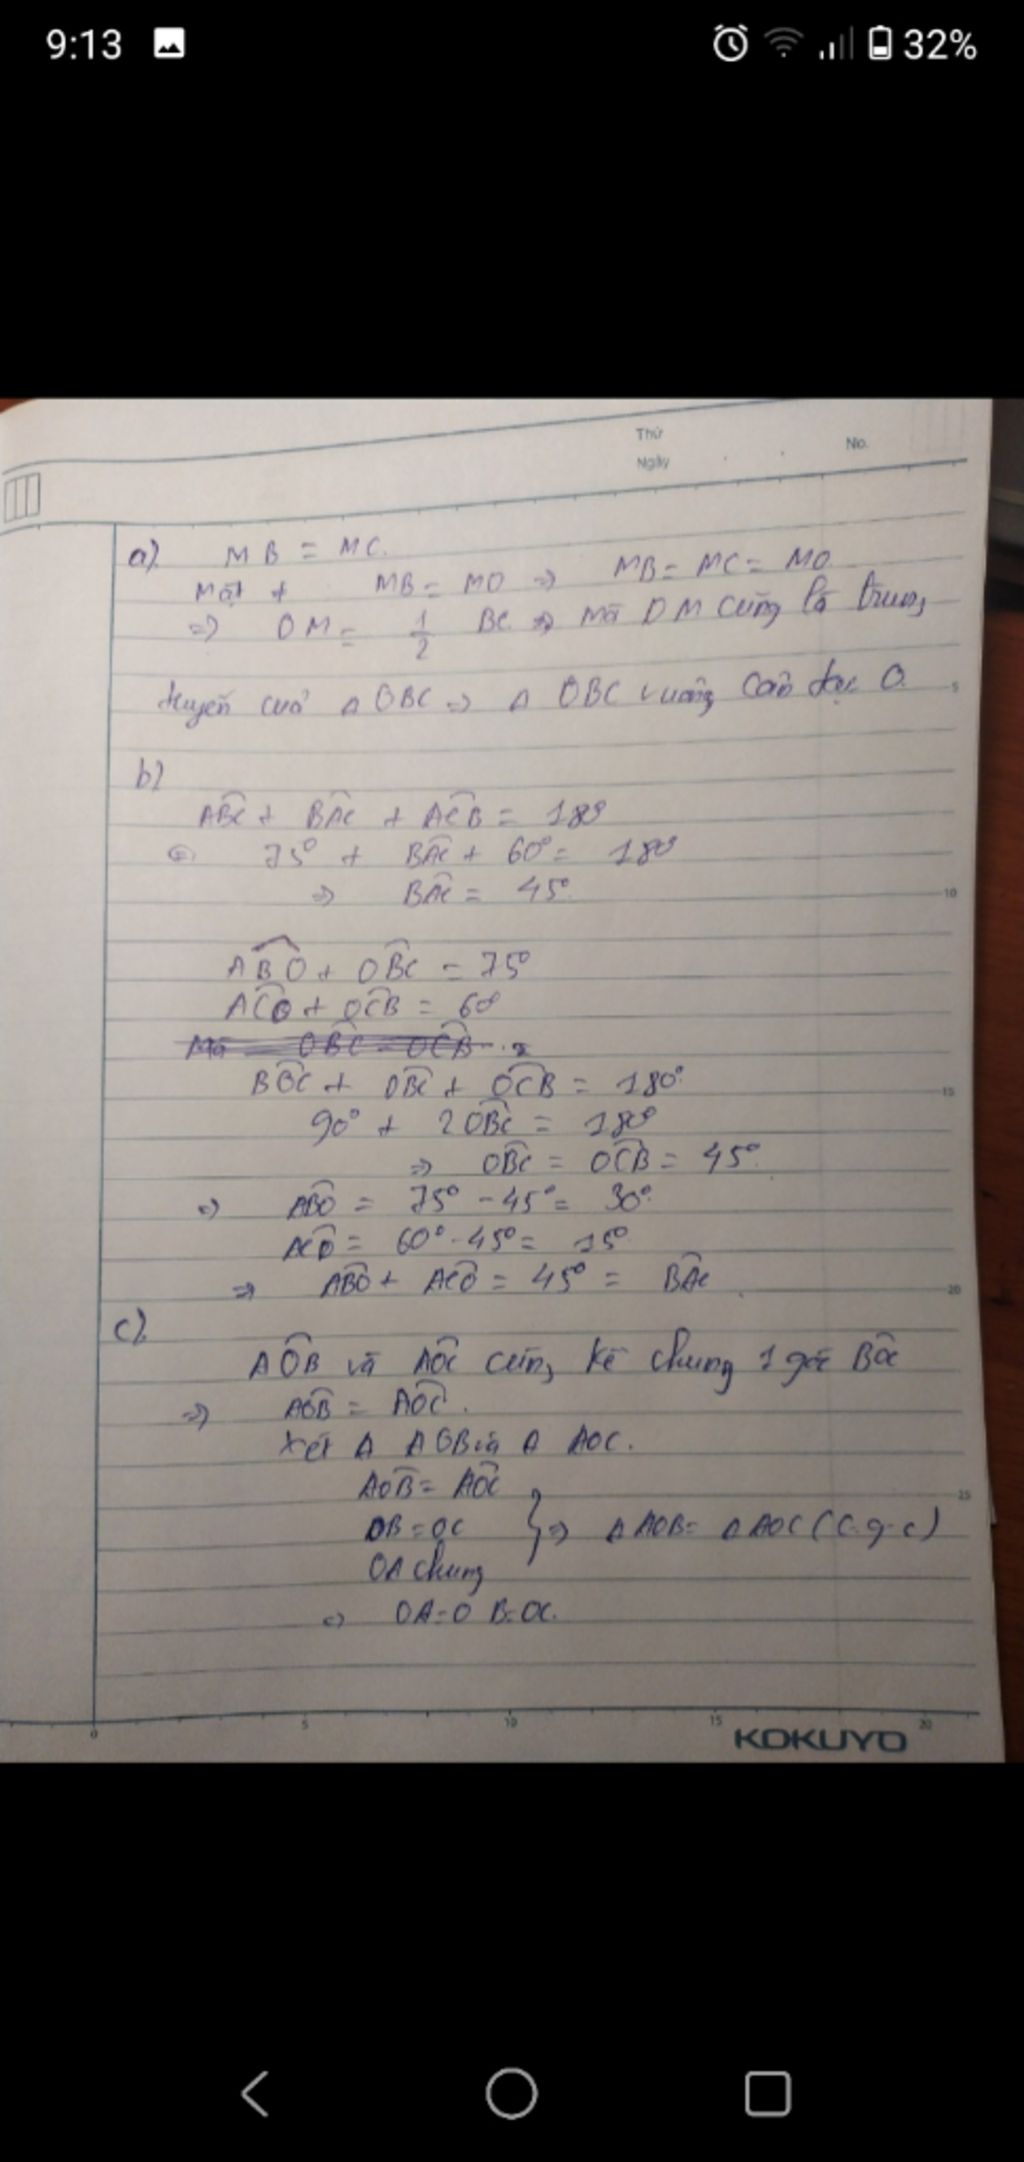 9:13 32%
Thứ No.
Ngày
a). MB = MC.
Mặt + MB = MO => MB = MC = MO
=> OM = 1/2 BC => Mà OM cũng là trung
tuyến của Δ OBC => Δ OBC vuông cân tại O. 5
b)
ABC + BAC + ACB = 180°
75° + BAC + 60° = 180°
=> BAC = 45° 10
ABO + OBC = 75°
ACO + OCB = 60°
BOC + OBC + OCB = 180° 15
90° + 2OBC = 180°
=> OBC = OCB = 45°.
=> ABO = 75° - 45° = 30°
ACO = 60° - 45° = 15°
=> ABO + ACO = 45° = BAC 20
c).
AOB và AOC cùng kề chung 1 góc BOC
=> AOB = AOC.
Xét Δ AOB và Δ AOC.
AOB = AOC 25
OB = OC } => Δ AOB = Δ AOC (c.g.c)
OA chung
=> OA = OB = OC.
0 5 10 15 20
KOKUYO